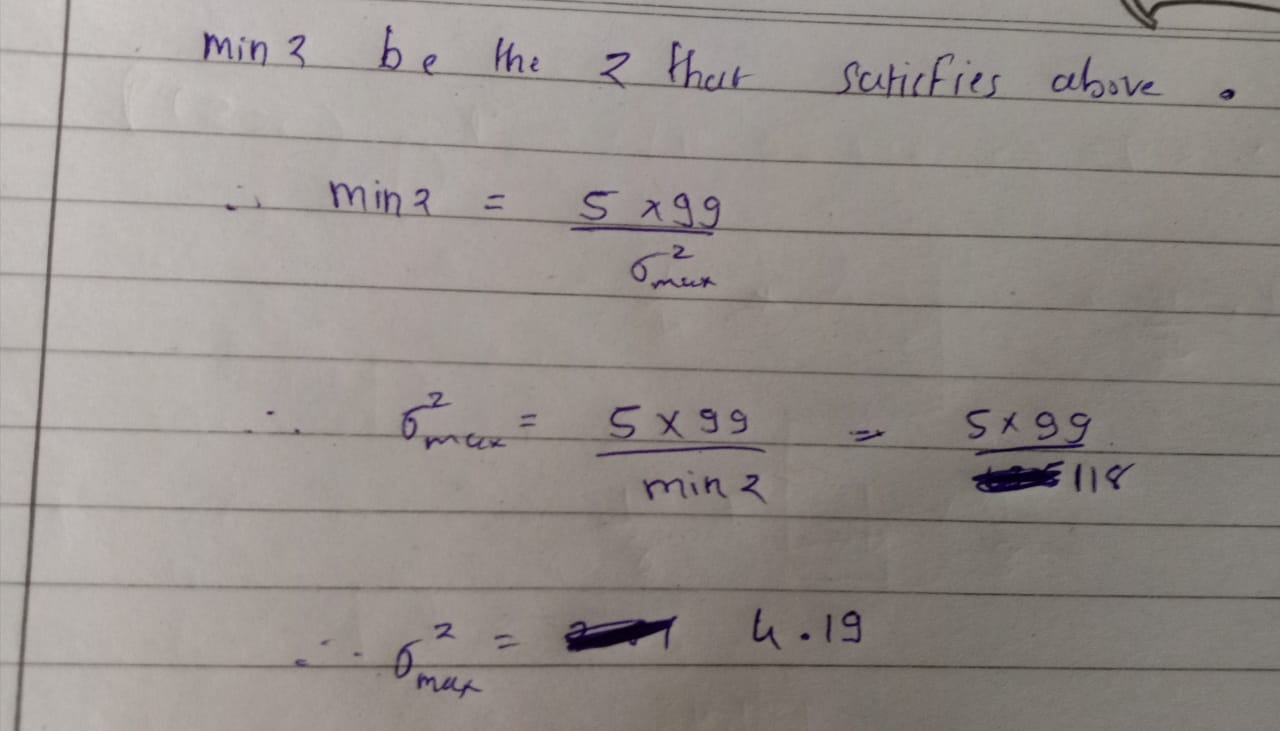 min z be the z that satisfies above .
∴ min z = 5 × 99 / σ²max
∴ σ²max = 5 × 99 / min z = 5 × 99 / 118
∴ σ²max = 4.19